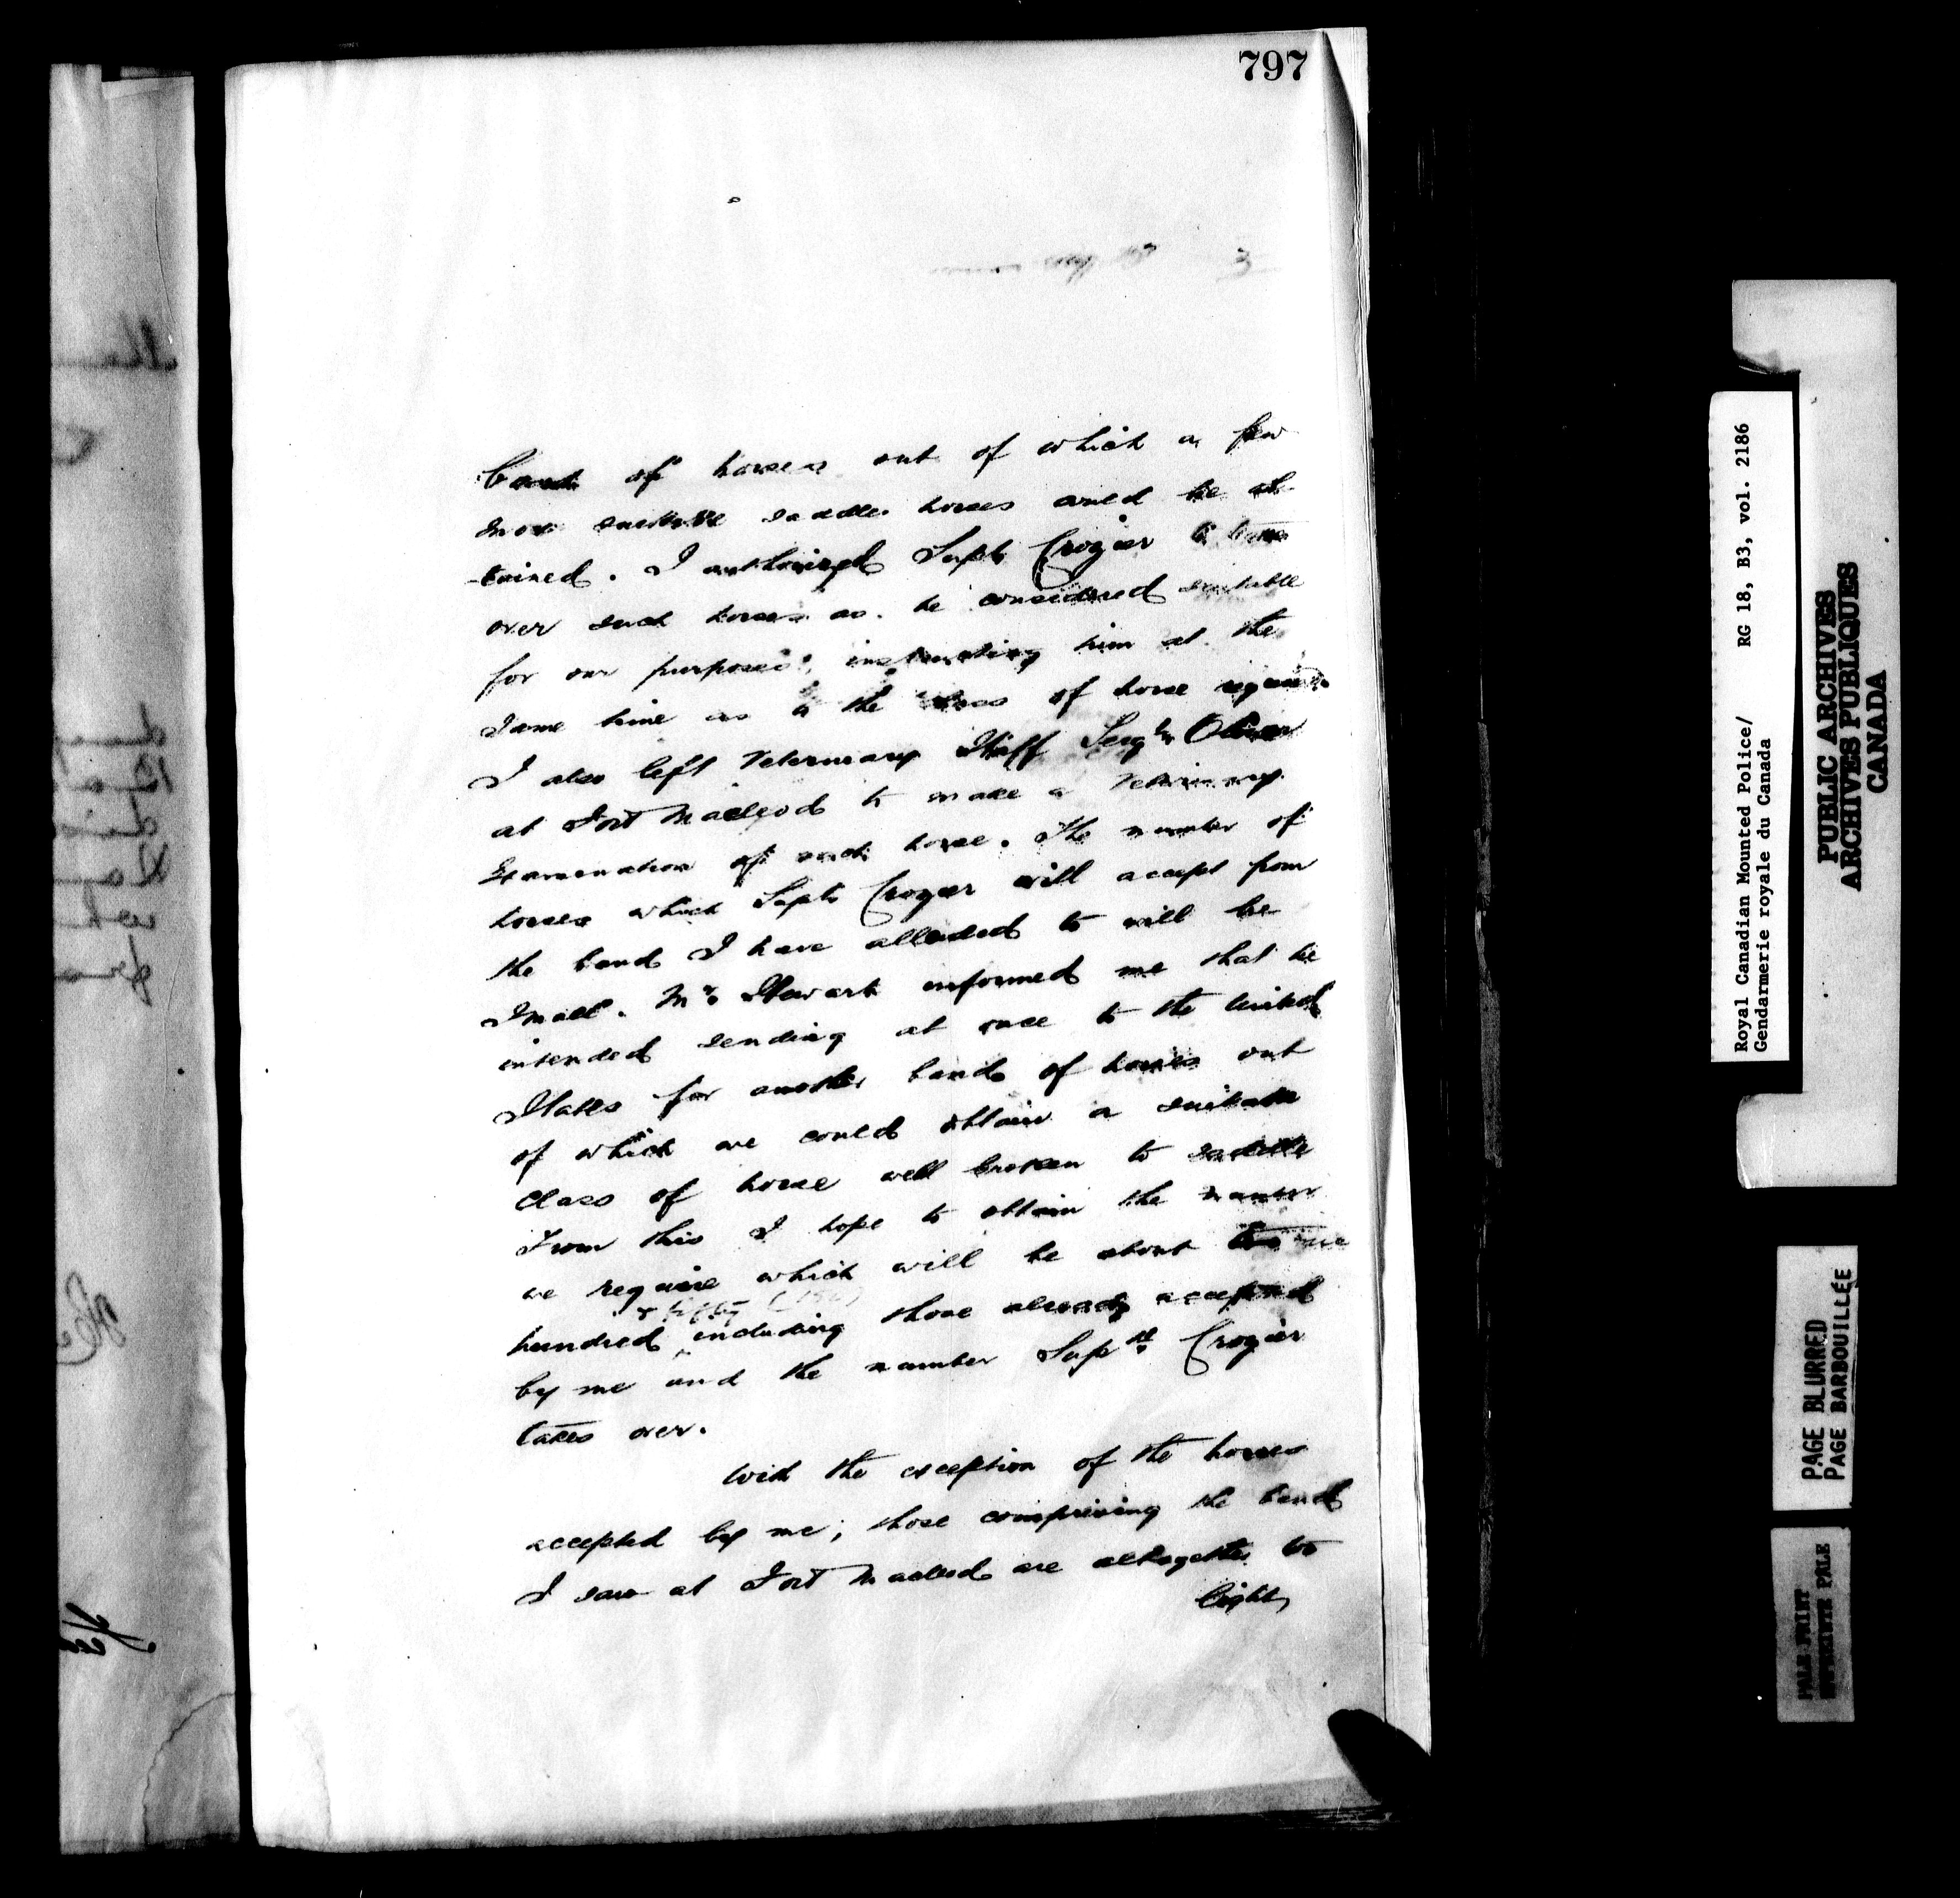 797
3
band of horses out of which a few
more suitable saddle horses could be ob-
tained. I authorized Supt. Crozier to take
over such horses as he considered suitable
for our purposes, instructing him at the
same time as to the class of horse required
I also left Veterinary Staff Sergt. Oliver
at Fort Macleod to make a veterinary
examination of each horse. The number of
horses which Supt. Crozier will accept from
the band I have alluded to will be
small. Mr. Stewart informed me that he
intended sending at once to the United
States for another band of horses out
of which we could obtain a suitable
class of horse well broken to saddle
From this I hope to obtain the number
we require which will be about one
& fifty (150)
hundred including those already accepted
by me and the number Supdt. Crozier
takes over.
With the exception of the horses
accepted by me; those comprising the band
I saw at Fort Macleod are altogether too
light,
Royal Canadian Mounted Police/ RG 18, B3, vol. 2186
Gendarmerie royale du Canada
PUBLIC ARCHIVES
ARCHIVES PUBLIQUES
CANADA
PAGE BLURRED
PAGE BARBOUILLÉE
PALE PRINT
IMPRIMÉE PALE